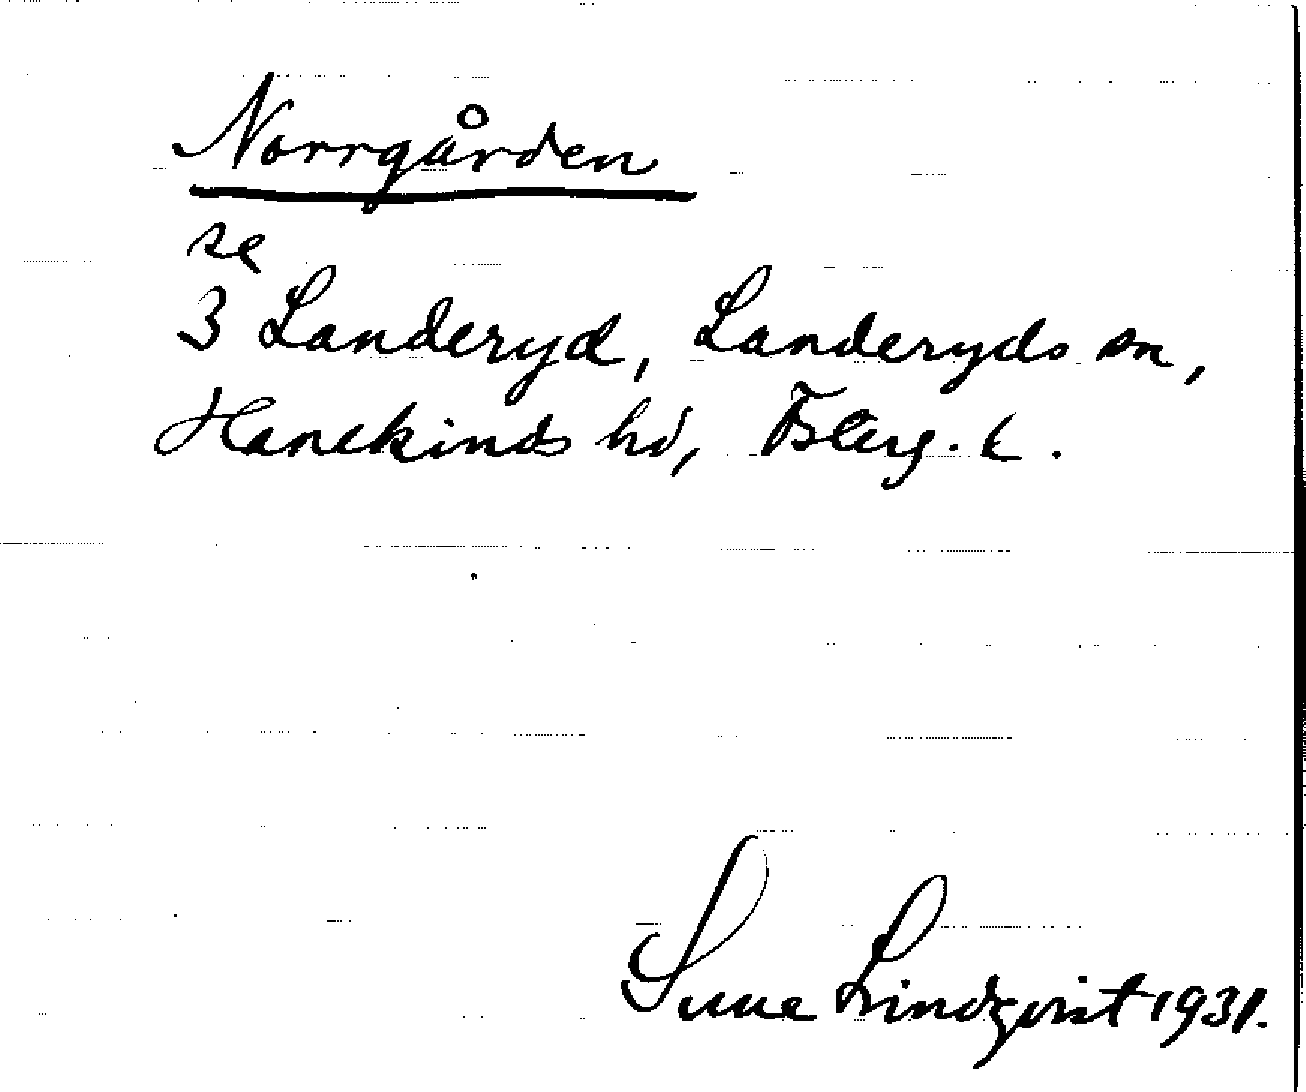 Norrgården
se
3 Landeryd, Landeryds sn,
Hanekinds hd, Öslerg. L.
Sune Lindqvist 1931.